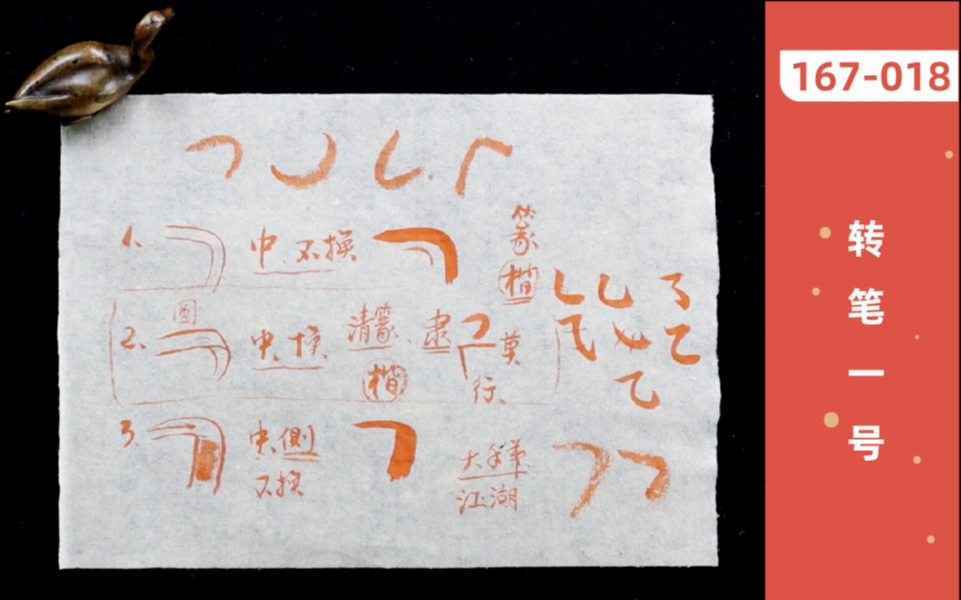 167-018
转笔一号
1、 中、不换
篆
楷
2、 圆 中、换 清篆、隶 莫
楷 行、
3、 中、侧
不换
江湖